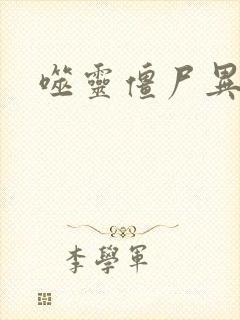 噬靈僵尸異
李學軍